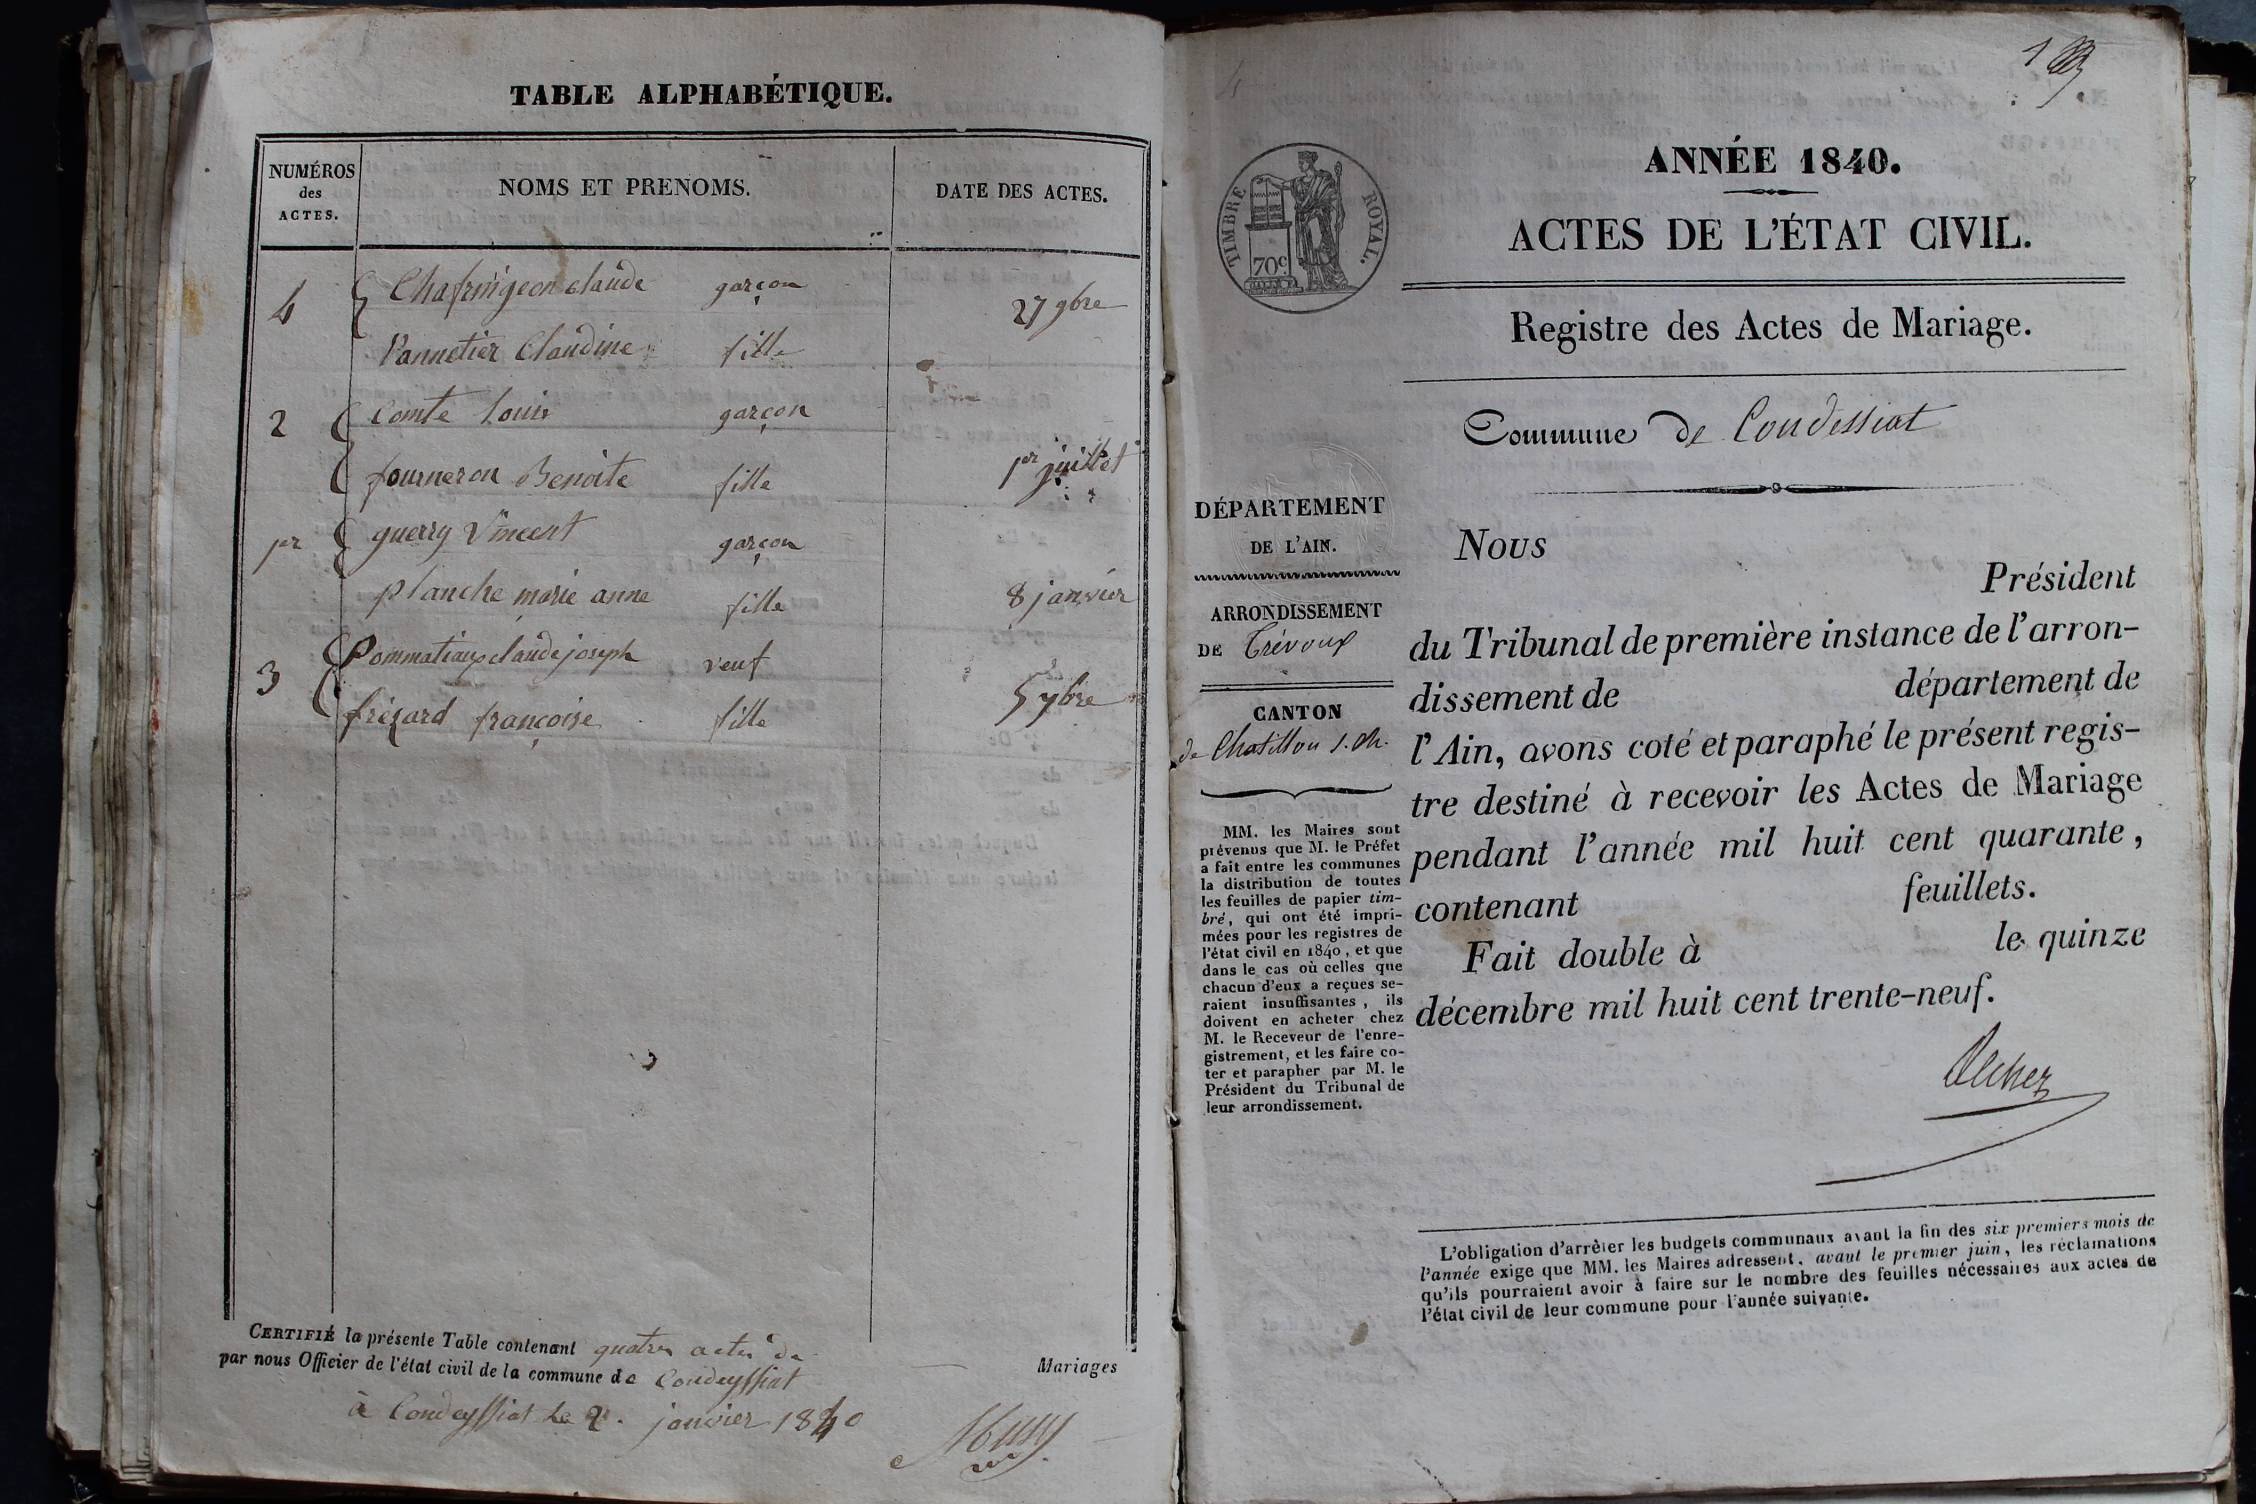 TABLE ALPHABÉTIQUE.
NUMÉROS des ACTES.
NOMS ET PRENOMS.
DATE DES ACTES.
4 Chafringeon claude garçon
27 9bre
Pannetier Claudine fille
2 Comte Louis garçon
1er juillet
fourneron Benoite fille
pr guerry Vincent garçon
planche marie anne fille 8 janvier
3 Pommatiaux claude joseph veuf
5 7bre
frézard françoise fille
CERTIFIÉ la présente Table contenant quatre actes de Mariages
par nous Officier de l'état civil de la commune de Condeyssiat
à Condeyssiat le 2. janvier 1840
ANNÉE 1840.
ACTES DE L'ÉTAT CIVIL.
Registre des Actes de Mariage.
TIMBRE ROYAL.
70c
Commune de Condessiat
DÉPARTEMENT
DE L'AIN.
ARRONDISSEMENT
DE Trévoux
CANTON
de Chatillon s. Ch.
MM. les Maires sont
prévenus que M. le Préfet
a fait entre les communes
la distribution de toutes
les feuilles de papier tim-
bré, qui ont été impri-
mées pour les registres de
l'état civil en 1840, et que
dans le cas où celles que
chacun d'eux a reçues se-
raient insuffisantes, ils
doivent en acheter chez
M. le Receveur de l'enre-
gistrement, et les faire co-
ter et parapher par M. le
Président du Tribunal de
leur arrondissement.
Nous
Président
du Tribunal de première instance de l'arron-
dissement de département de
l'Ain, avons coté et paraphé le présent regis-
tre destiné à recevoir les Actes de Mariage
pendant l'année mil huit cent quarante,
contenant feuillets.
Fait double à le quinze
décembre mil huit cent trente-neuf.
L'obligation d'arrêter les budgets communaux avant la fin des six premiers mois de
l'année exige que MM. les Maires adressent, avant le premier juin, les réclamations
qu'ils pourraient avoir à faire sur le nombre des feuilles nécessaires aux actes de
l'état civil de leur commune pour l'année suivante.